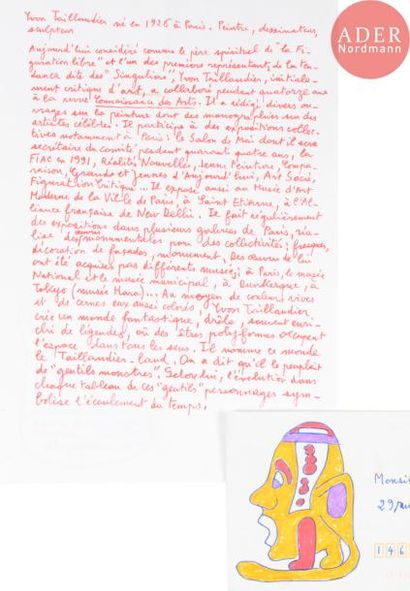 Yvon Taillandier né en 1926 à Paris. Peintre, dessinateur,
sculpteur
Aujourd'hui considéré comme le père spirituel de "la Fi-
guration libre" et l'un des premiers représentants de la ten-
dance dite des "Singuliers", Yvon Taillandier, initiale-
ment critique d'art, a collaboré pendant quatorze ans
à la revue Connaissance des Arts. Il a rédigé divers ou-
vrages sur la peinture dont des monographies sur des
artistes célèbres. Il participe à des expositions collec-
tives notamment à Paris: le Salon de Mai dont il sera
secrétaire du comité pendant quarante quatre ans, la
FIAC en 1991, Réalités Nouvelles, Jeune Peinture, Compa-
raison, Grands et Jeunes d'Aujourd'hui, Art Sacré,
Figuration Critique... Il expose aussi au Musée d'Art
Moderne de la Ville de Paris, à Saint Etienne, à l'Al-
liance française de New Delhi. Il fait régulièrement
des expositions dans plusieurs galeries de Paris, réa-
lise des œuvres monumentales pour des collectivités: fresques,
décoration de façades, monument. Des œuvres de lui
ont été acquises par différents musées: à Paris, le musée
National et le musée municipal, à Dunkerque, à
Tokyo (musée Hara)... Au moyen de couleurs vives
et de cernes eux aussi colorés, Yvon Taillandier
crée un monde fantastique, drôle, souvent enri-
chi de légendes, où des êtres polyformes occupent
l'espace dans tous les sens. Il nomme ce monde
le Taillandier-land. On a dit qu'il le peuplait
de "gentils monstres". Selon lui, l'évolution dans
chaque tableau de ces "gentils" personnages sym-
bolise l'écoulement du temps.
ADER
Nordmann
Monsi
29, ru
1 4 6